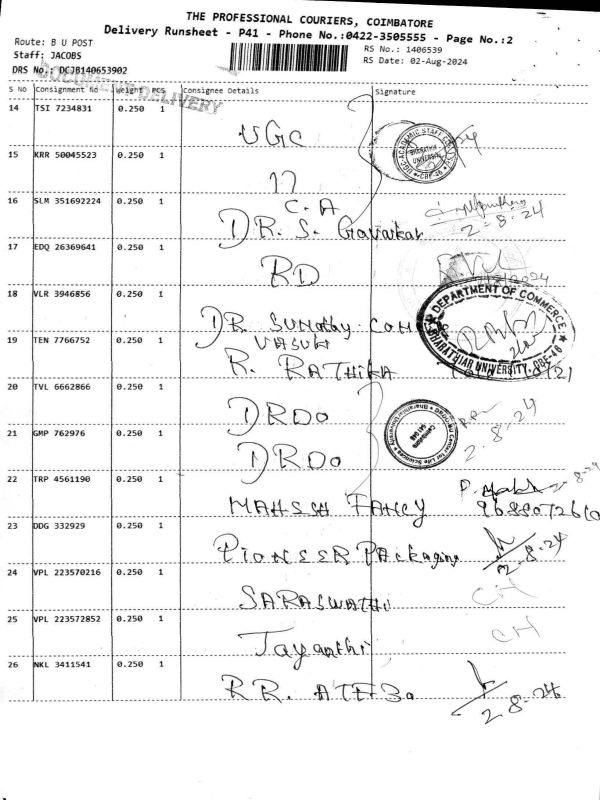 THE PROFESSIONAL COURIERS, COIMBATORE
Delivery Runsheet - P41 - Phone No.:0422-3505555 - Page No.:2
Route: B U POST
Staff: JACOBS
DRS No.: DCJB140653902
RS No.: 1406539
RS Date: 02-Aug-2024
DOCUMENT DELIVERY
S No Consignment No Weight PCS Consignee Details Signature
14 TSI 7234831 0.250 1
UGC
15 KRR 50045523 0.250 1
17
16 SLM 351692224 0.250 1
C.A
DR. S. Gavaskar 2-8-24
17 EDQ 26369641 0.250 1
RD
18 VLR 3946856 0.250 1
DR.
DEPARTMENT OF COMMERCE
BHARATHIAR UNIVERSITY, CBE-46
19 TEN 7766752 0.250 1
R. RATHIKA
20 TVL 6662866 0.250 1
DRDO
21 GMP 762976 0.250 1
DRDO 2-8-24
22 TRP 4561190 0.250 1
MAHESH FANCY
23 DDG 332929 0.250 1
PIONEER Packaging 2-8-24
24 VPL 223570216 0.250 1
SARASWATHI CH
25 VPL 223572852 0.250 1
Jayanthi CH
26 NKL 3411541 0.250 1
RR. 2-8-24